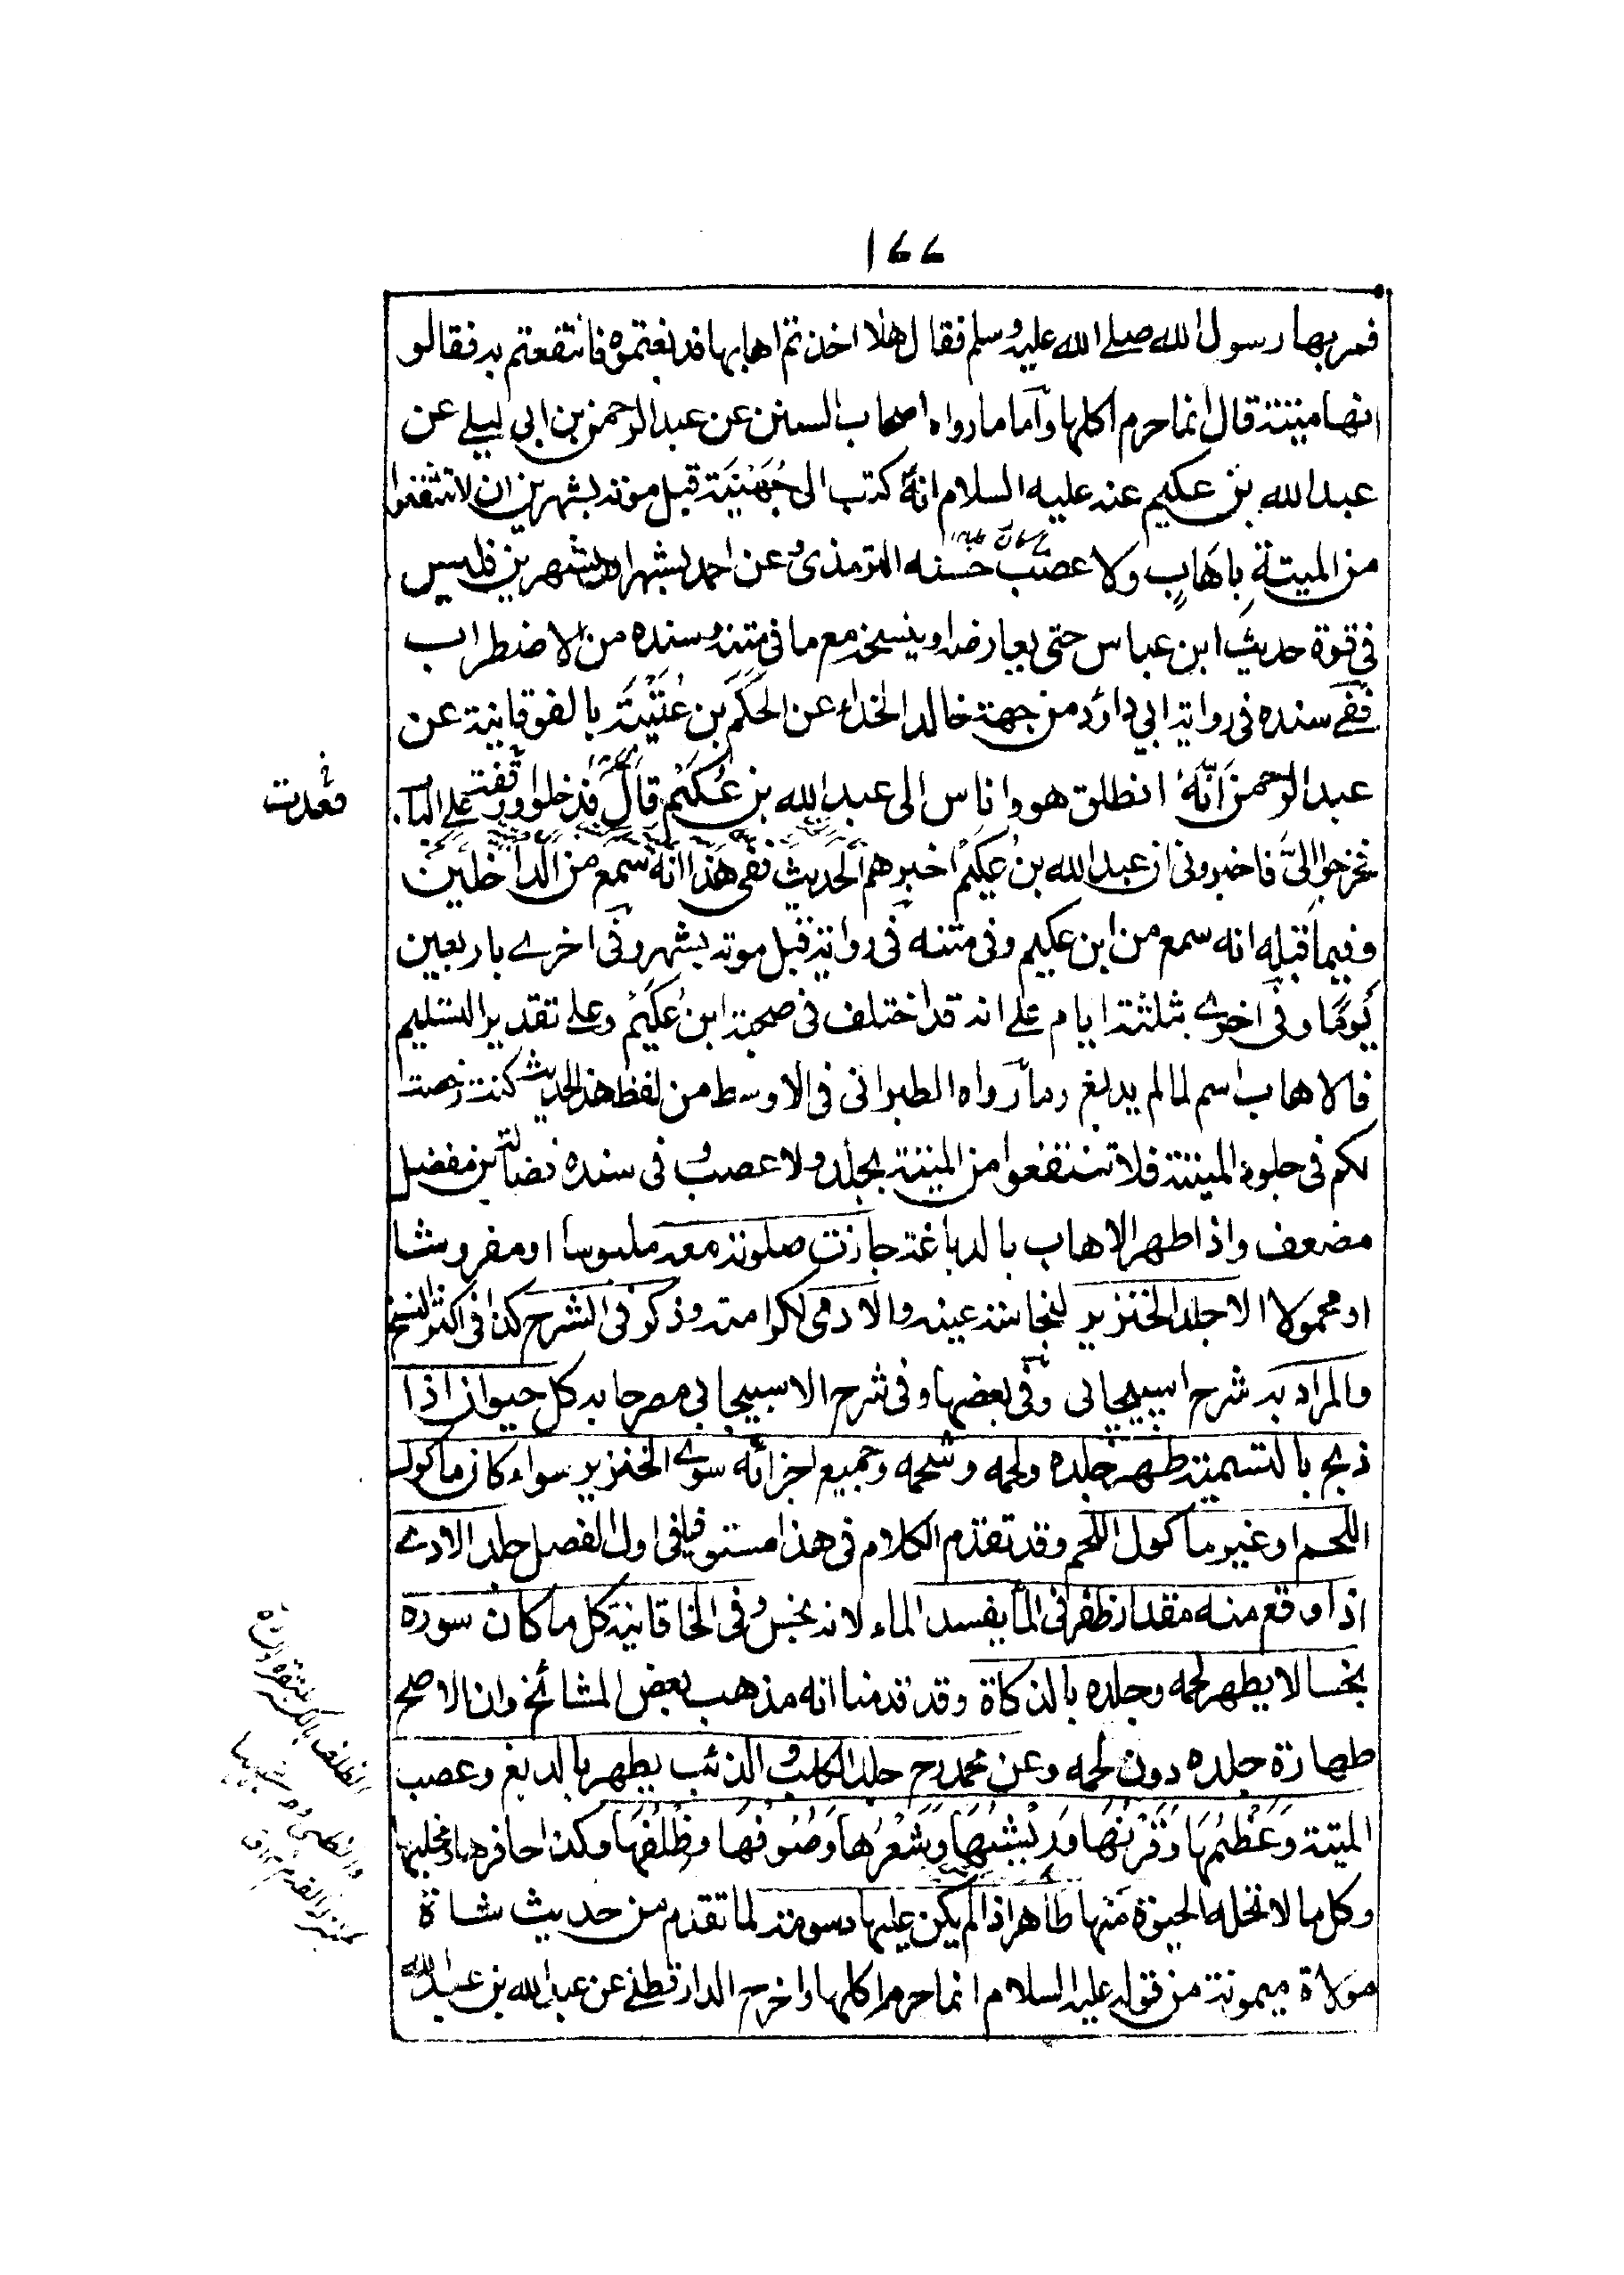 ١٧٧
فمر بها رسول الله صلے الله عليه وسلم فقال هلا اخذتم اهابها فدبغتموه فانتفعتم به فقالو
انها ميتة قال انما حرم اكلها واما ما رواه اصحاب السنن عن عبد الرحمن بن ابي ليلے عن
عبد الله بن عكيم عنه عليه السلام انهٗ كتب الى جُهَيْنَة قبل موته بشهرين ان لا تنتفعوا
من الميتة بِاهَابٍ ولا عصب حسنه الترمذي وعن احمد بشهر او بشهرين فليس
في قوة حديث ابن عباس حتى يعارضه او ينسخه مع ما في متنه وسنده من الاضطراب
ففے سنده في رواية ابي داؤد من جهة خالد الحذاء عن الحَكَم بن عُتَيْبَة بالفوقانية عن
عبد الرحمن اَنَّهٗ انطلق هو واناس الى عبد الله بن عُكَيْم قال فدخلوا ووقفت علے الباب
فقعدت
فخرجوا اليَّ فاخبروني ان عبد الله بنُ عكيم اخبرهم الحديث ففي هذا انهٗ سمع من الداخلين
وفيما قبله انه سمع من ابن عكيم وفي متنه في رواية قبل موته بشهر وفي اخرے باربعين
يومًا وفي اخرے بثلثة ايام علے انه قد اختلف في صحبة ابن عُكَيْم وعلے تقدير التسليم
فالاهاب اسم لما لم يدبغ وما رواه الطبراني في الاوسط من لفظ هذا الحديث كنت رخصت
لكم في جلود الميتة فلا تنتفعوا من الميتة بجلد ولا عصب وفي سنده فضالة بن مفضل
مضعف واذا طهر الاهاب بالدباغة جازت صلوته معه ملبوسا او مفروشا
او محمولا الا جلد الخنزير لنجاسة عينه والآدمي لكرامته وذكر في الشرح كذا في اكثر النسخ
والمراد به شرح اسبيجابي وفي بعضها وفي شرح الاسبيجابي مصرحا به كل حيوان اذا
ذبح بالتسمية طهر جلده ولحمه وشحمه وجميع اجزائه سوے الخنزير سواء كان ماكول
اللحم او غير ماكول اللحم وقد تقدم الكلام في هذا مستوفيا في اول الفصل جلد الادمے
اذا وقع منه مقدار ظفر في الماء يفسد الماء لانه نجس وفي الخاقانية كل ما كان سوره
نجسا لا يطهر لحمه وجلده بالذكاة وقد قدمنا انه مذهب بعض المشائخ وان الاصح
طهارة جلده دون لحمه وعن محمد رح جلد الكلب والذئب يطهر بالدبغ وعصب
الميتة وَعَظْمُهَا وَقَرْنُهَا وَرِيْشُهَا وَشَعْرُهَا وَصُوفُهَا وَظِلْفُهَا وكذا حافرها ومخلبها
وكل ما لا تحله الحيوة مِنْها طاهر اذا لم يكن عليها دسومة لما تقدم من حديث شاة
مولاة ميمونة من قوله عليه السلام انما حرم اكلها واخرج الدارقطنے عن عبد الله بن عبد الله